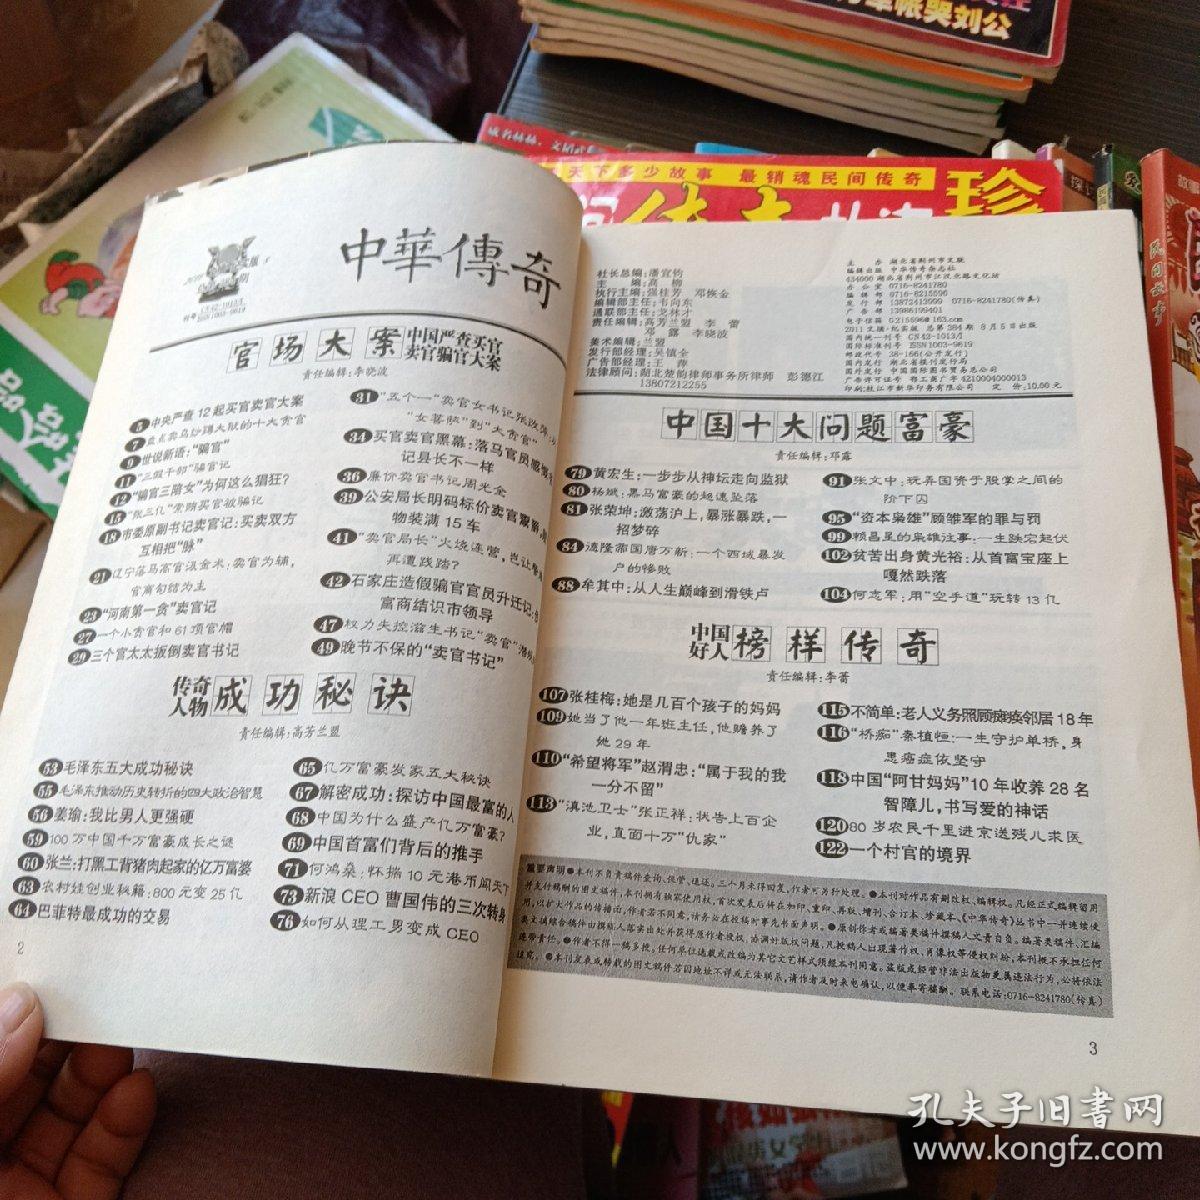 中華傳奇
刊号 CN42-1013/I
ISSN1003-9619
官场大案
中国严查买官
卖官骗官大案
责任编辑:李晓波
5 中央严查12起买官卖官大案
7 盘点卖乌纱蹲大狱的十大贪官
9 世说新语:“骗官”
11 “三假干部”骗官记
12 “骗官三陪女”为何这么猖狂?
18 市委原副书记卖官记:买卖双方
互相把“脉”
21 辽宁落马高官谋金术:卖官为辅,
官商勾结为主
23 “河南第一贪”卖官记
27 一个小贪官和61顶官帽
29 三个官太太扳倒卖官书记
“女菩萨”到“大贪官”
34 买官卖官黑幕:落马官员感慨
记县长不一样
36 廉价卖官书记周光全
39 公安局长明码标价卖官聚
物装满15车
41 “卖官局长”火烧连营,岂让
再遭践踏?
42 石家庄造假骗官官员升迁记:
富商结识市领导
47 权力失控滋生书记“卖官”
49 晚节不保的“卖官书记”
传奇
人物
成功秘诀
责任编辑:高芳兰盟
53 毛泽东五大成功秘诀
55 毛泽东推动历史转折的四大政治智慧
56 姜瑜:我比男人更强硬
59 100万中国千万富豪成长之谜
60 张兰:打黑工背猪肉起家的亿万富婆
63 农村娃创业秘籍:800元变25亿
64 巴菲特最成功的交易
65 亿万富豪发家五大秘诀
67 解密成功:探访中国最富的人
68 中国为什么盛产亿万富豪?
69 中国首富们背后的推手
71 何鸿燊:怀揣10元港币闯天下
73 新浪CEO曹国伟的三次转身
76 如何从理工男变成CEO
2
社长总编:潘宜钧
主 编:高 柳
执行主编:强桂芳 邓恢金
编辑部主任:韦向东
通联部主任:戈林才
责任编辑:高芳兰盟 李 蕾
邓 露 李晓波
美术编辑:兰盟
发行部经理:吴镇全
广告部经理:王 萍
法律顾问:湖北楚韵律师事务所律师 彭德江
13807212255
主 办 湖北省荆州市文联
编辑出版 中华传奇杂志社
434000 湖北省荆州市江汉北路文化坊
办 公 室 0716-8241780
编 辑 部 0716-8215596
发 行 部 13872414999 0716-8241780(传真)
广 告 部 13986195401
电子信箱 C215596@163.com
2011文摘·纪实版 总第384期 8月5日出版
国内统一刊号 CN 42-1013/I
国际标准刊号 ISSN1003-9619
邮政代号 38-166(公开发行)
国内发行 湖北省报刊发行局
国外发行 中国国际图书贸易总公司
广告许可证号 鄂工商广字4210004000013
印刷:枝江市新华印务有限公司 定 价:10.00元
中国十大问题富豪
责任编辑:邓露
79 黄宏生:一步步从神坛走向监狱
80 杨斌:黑马富豪的超速坠落
81 张荣坤:激荡沪上,暴涨暴跌,一
招梦碎
84 德隆帝国唐万新:一个西域暴发
户的惨败
88 牟其中:从人生巅峰到滑铁卢
91 张文中:玩弄国资于股掌之间的
阶下囚
95 “资本枭雄”顾雏军的罪与罚
99 赖昌星的枭雄往事:一生跌宕起伏
102 贫苦出身黄光裕:从首富宝座上
嘎然跌落
104 何志军:用“空手道”玩转13亿
中国
好人
榜样传奇
责任编辑:李蕾
107 张桂梅:她是几百个孩子的妈妈
109 她当了他一年班主任,他赡养了
她29年
110 “希望将军”赵渭忠:“属于我的我
一分不留”
113 “滇池卫士”张正祥:状告上百企
业,直面十万“仇家”
115 不简单:老人义务照顾瘫痪邻居18年
116 “桥痴”秦植恒:一生守护单桥,身
患癌症依坚守
118 中国“阿甘妈妈”10年收养28名
智障儿,书写爱的神话
120 80岁农民千里进京送残儿求医
122 一个村官的境界
3
天下多少故事 最销魂民间传奇
珍
民间故事
孔夫子旧书网
www.kongfz.com